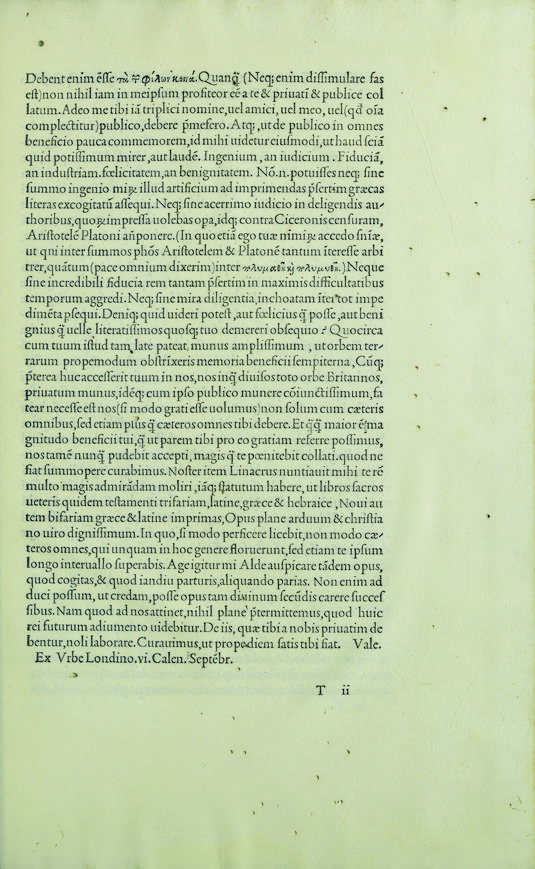 Debent enim eſſe τὰ τῶν φίλων κοινά. Quanq̃ (Neq; enim diſſimulare fas
eſt) non nihil iam in meipſum profiteor eē a te & priuatī & publice col
latum. Adeo me tibi iā triplici nomine, uel amici, uel meo, uel (qđ oīa
complectitur) publico, debere p̄mefero. Atq;, ut de publico in omnes
beneficio pauca commemorem, id mihi uidetur eiuſmodi, ut haud ſciā
quid potiſſimum mirer, aut laudē. Ingenium, an iudicium. Fiduciā,
an induſtriam. fœlicitatem, an benignitatem. Nō.n. potuiſſes neq; ſine
ſummo ingenio miꝝ illud artificium ad imprimendas p̄ſertim græcas
literas excogitatū aſſequi. Neq; ſine acerrimo iudicio in deligendis au⸗
thoribus, quoꝝ impreſſa uolebas opa, idq; contra Ciceronis cenſuram,
Ariſtotelē Platoni añponere. (In quo etiā ego tuæ nimiꝝ accedo ſn̄iæ,
ut qui inter ſummos ph̄os Ariſtotelem & Platonē tantum ītereſſe arbi
trer, quātum (pace omnium dixerim) inter .) Neque
ſine incredibili fiducia rem tantam p̄ſertim in maximis difficultatibus
temporum aggredi. Neq; ſine mira diligentia, inchoatam īter tot impe
dimēta p̄ſequi. Deniq; quid uideri poteſt, aut fœlicius q̃ poſſe, aut beni
gnius q̃ uelle literatiſſimos quoſq; tuo demereri obſequio? Quocirca
cum tuum iſtud tam late pateat, munus ampliſſimum, ut orbem ter⸗
rarum propemodum obſtrīxeris memoria beneficii ſempiterna, Cūq;
p̄terea huc acceſſerit tuum in nos, nos inq̃ diuiſos toto orbe Britannos,
priuatum munus, idēq; cum ipſo publico munere cōiunctiſſimum, fa
tear neceſſe eſt nos (ſi modo grati eſſe uolumus) non ſolum cum cæteris
omnibus, ſed etiam plus q̃ cæteros omnes tibi debere. Et q̃q̃ maior ē ma
gnitudo beneficii tui, q̃ ut parem tibi pro eo gratiam referre poſſimus,
nos tamē nunq̃ pudebit accepti, magis q̃ te pœnitebit collati. quod ne
fiat ſummopere curabimus. Noſter item Linacrus nuntiauit mihi te rē
multo magis admirādam moliri, iāq; ſtatutum habere, ut libros ſacros
ueteris quidem teſtamenti trifariam, latine, græce & hebraice, Noui au
tem bifariam græce & latine imprimas, Opus plane arduum & chriſtia
no uiro digniſſimum. In quo, ſi modo perficere licebit, non modo cæ⸗
teros omnes, qui unquam in hoc genere floruerunt, ſed etiam te ipſum
longo interuallo ſuperabis. Age igitur mi Alde auſpicare tādem opus,
quod cogitas, & quod iandiu parturis, aliquando parias. Non enim ad
duci poſſum, ut credam, poſſe opus tam diuinum ſecūdis carere ſucceſ
ſibus. Nam quod ad nos attinet, nihil plane p̄termittemus, quod huic
rei futurum adiumento uidebitur. De iis, quæ tibi a nobis priuatim de
bentur, noli laborare. Curauimus, ut propediem ſatis tibi fiat. Vale.
Ex Vrbe Londino. vi. Calen. Septēbr.
T ii